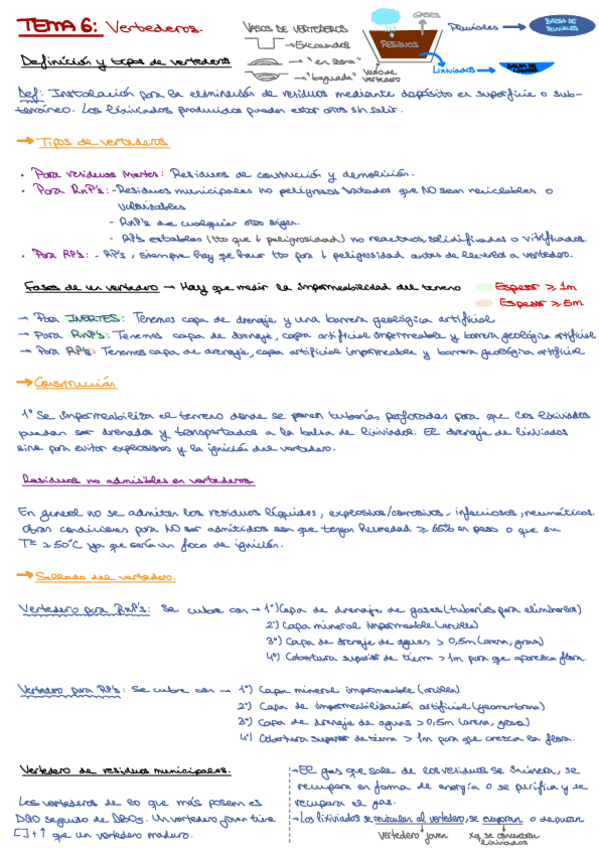 TEMA 6: Vertederos.
VASOS DE VERTEDEROS
→ Excavados
→ "en zona"
→ "bagueada"
GASES
RESIDUOS
Vaso de vertedero
Lixiviados
Pluviales →
BALSA DE PLUVIALES
BALSA DE
Definición y tipos de vertederos
Def: Instalación para la eliminación de residuos mediante depósito en superficie o sub-
terráneo. Los lixiviados producidos pueden estar años sin salir.
→ Tipos de vertederos
• Para residuos inertes: Residuos de construcción y demolición.
• Para RnP's: - Residuos municipales no peligrosos tratados que NO sean reciclables o
valorizables
- RnP's de cualquier otro origen.
- RP's estables (tto que ↓ peligrosidad) no reactivos solidificados o vitrificados.
• Para RP's: - RP's, siempre hay que hacer tto para ↓ peligrosidad antes de llevarlos a vertedero.
Fases de un vertedero → Hay que medir la impermeabilidad del terreno
Espesor ≥ 1m
Espesor ≥ 5m
→ Para INERTES: Tenemos capa de drenaje y una barrera geológica artificial
→ Para RnP's: Tenemos capa de drenaje, capa artificial impermeable y barrera geológica artificial
→ Para RP's: Tenemos capa de drenaje, capa artificial impermeable y barrera geológica artificial
→ Construcción
1º Se impermeabiliza el terreno donde se ponen tuberías perforadas para que los lixiviados
puedan ser drenados y transportados a la balsa de lixiviados. El drenaje de lixiviados
sirve para evitar explosiones y la ignición del vertedero.
Residuos no admisibles en vertederos
En general no se admiten los residuos líquidos, explosivos/corrosivos, infecciosos, neumáticos.
Otras condiciones para NO ser admitidos son que tengan humedad ≥ 65% en peso o que su
Tª ≥ 50°C ya que sería un foco de ignición.
→ Sellado del vertedero.
Vertedero para RnP's: Se cubre con → 1º) Capa de drenaje de gases (tuberías para eliminarlos)
2º) Capa mineral impermeable (arcilla)
3º) Capa de drenaje de aguas > 0,5m (arena, grava)
4º) Cobertura superior de tierra > 1m para que aparezca flora.
Vertedero para RP's: Se cubre con → 1º) Capa mineral impermeable (arcilla)
2º) Capa de impermeabilización artificial (geomembrana)
3º) Capa de drenaje de aguas > 0,5m (arena, grava)
4º) Cobertura superior de tierra > 1m para que crezca la flora.
Vertedero de residuos municipales.
Los vertederos de lo que más poseen es
DQO seguido de DBO5. Un vertedero joven tiene
[ ] + ↑ que un vertedero maduro.
→ El gas que sale de los residuos se quema, se
recupera en forma de energía o se purifica y se
recupera el gas.
→ Los lixiviados se recirculan al vertedero, se evaporan o depuran
vertedero joven
xq se concentran lixiviados